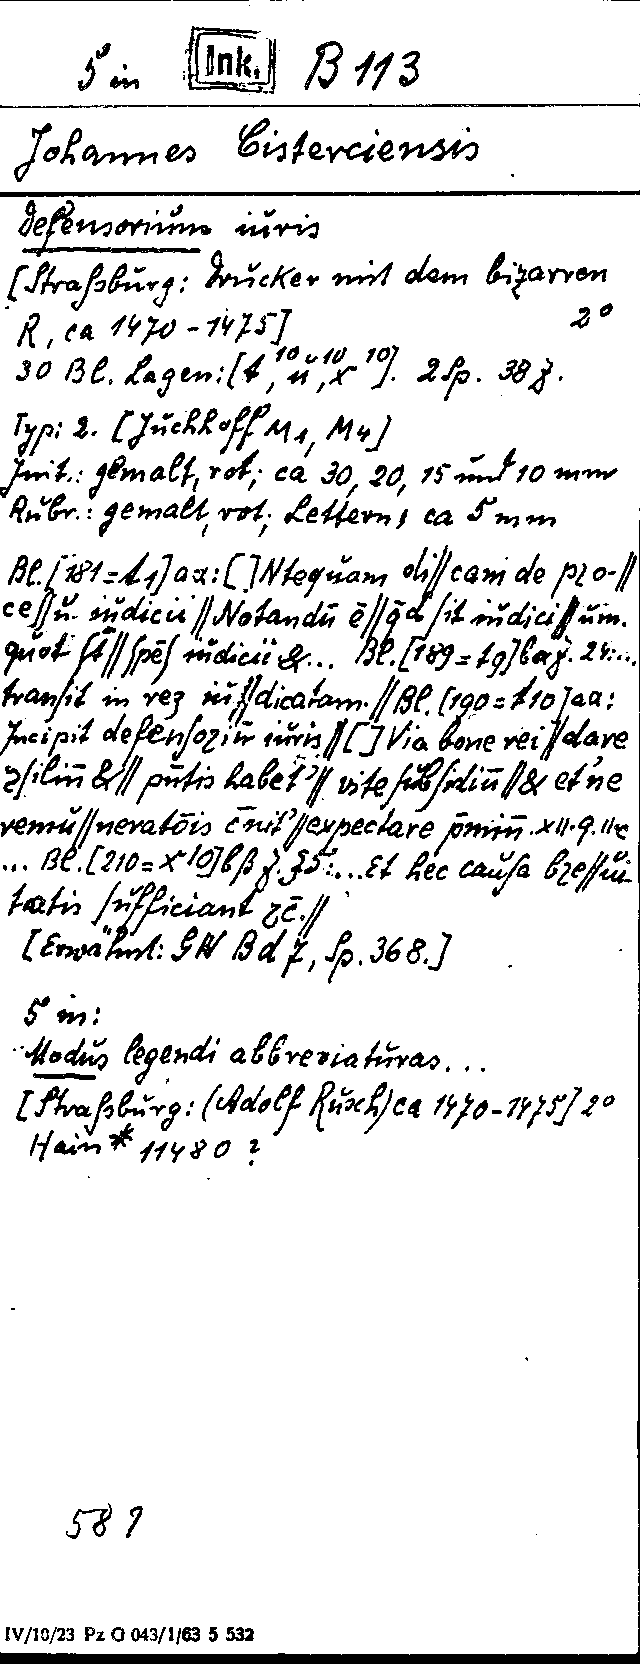 5 in Ink. B 113
Johannes Cisterciensis
Defensorium iuris
[Straßburg: Drucker mit dem bizarren
R, ca 1470-1475] 2°
30 Bl. Lagen: [t¹⁰, u¹⁰, x¹⁰]. 2 Sp. 38 Z.
Typ: 2. [Juchhoff M1, M4]
Init.: gemalt, rot; ca 30, 20, 15 und 10 mm
Rubr.: gemalt, rot; Lettern, ca 5 mm
Bl. [181=t1]aα: [ ]Ntequam di//cam de pro-//
ce//u. iudicii // Notandū ē // qd sit iudici//um.
quot st̄ // spēs iudicii &... Bl. [189=t9]bα Z. 24:...
transit in rez iu//dicatam. // Bl. [190=t10]aα:
Incipit defensoriū iuris // [ ]Via bone rei // dare
ↄsiliū & // pn̄tis habet' // vite subsidiū // & et'ne
remu//neratōis
expectare p̄miū.
... Bl. [210=x10]bβ Z. 35:... Et hec causa bre//ui-
tatis sufficiant zc̄. //
[Erwähnt: GW Bd 7, Sp. 368.]
5 in:
Modus legendi abbreviaturas...
[Straßburg: (Adolf Rusch) ca 1470-1475] 2°
Hain* 11480 ?
589
IV/10/23 Pz G 043/1/63 5 532